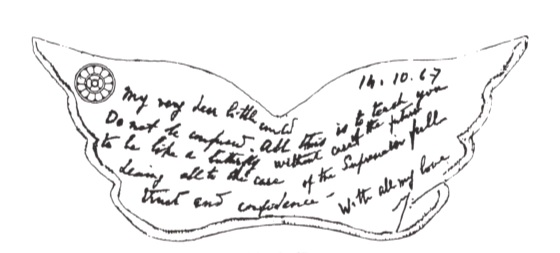 14.10.67
My very dear little child
Do not be confused. All this is to teach you
to be like a butterfly without care of the future
leaving all to the care of the Supermaster full
trust and confidence –
With all my love